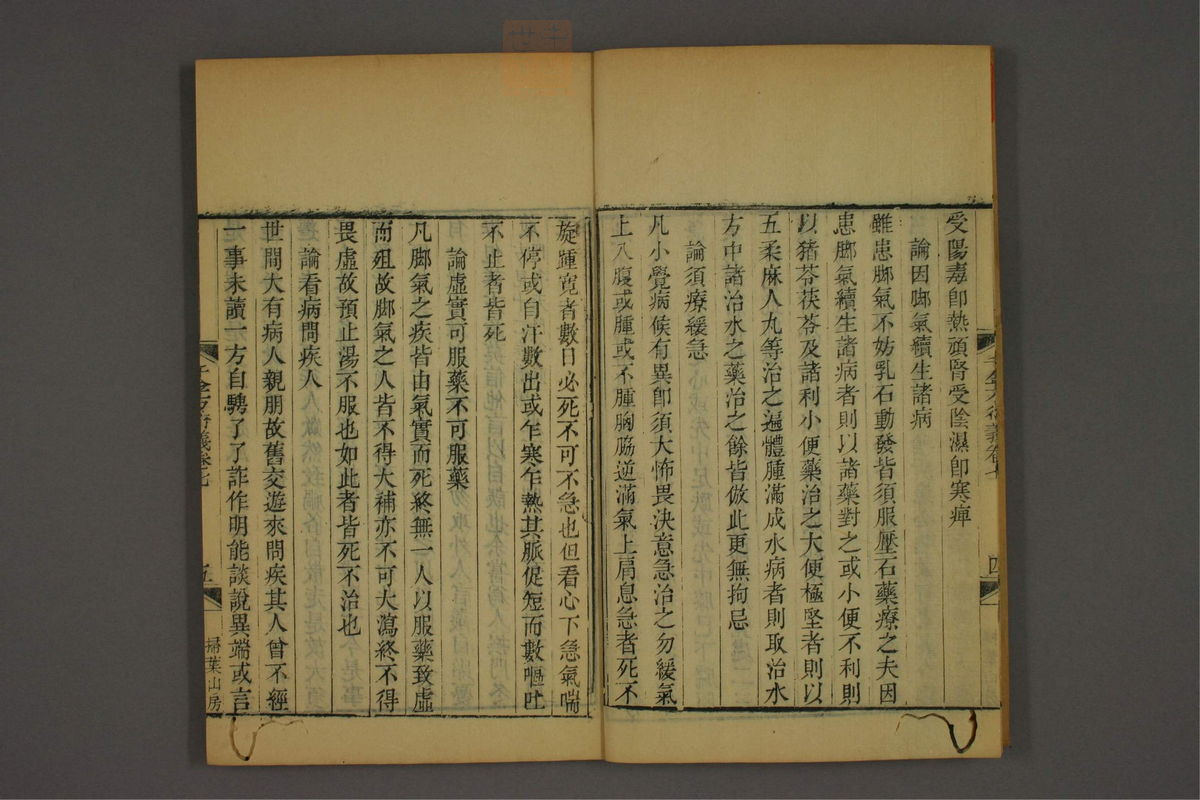 受陽毒即熱頑腎受陰濕即寒痺
論因脚氣續生諸病
雖患脚氣不妨乳石動發皆須服壓石藥療之夫因
患脚氣續生諸病者則以諸藥對之或小便不利則
以猪苓茯苓及諸利小便藥治之大便極堅者則以
五柔麻人丸等治之遍體腫滿成水病者則取治水
方中諸治水之藥治之餘皆倣此更無拘忌
論須療緩急
凡小覺病候有異即須大怖畏決意急治之勿緩氣
上入腹或腫或不腫胸脇逆滿氣上肩息急者死不
四
旋踵寬者數日必死不可不急也但看心下急氣喘
不停或自汗數出或乍寒乍熱其脈促短而數嘔吐
不止者皆死
論虛實可服藥不可服藥
凡脚氣之疾皆由氣實而死終無一人以服藥致虛
而殂故脚氣之人皆不得大補亦不可大瀉終不得
畏虛故預止湯不服也如此者皆死不治也
論看病問疾人
世間大有病人親朋故舊交遊來問疾其人曾不經
一事未讀一方自騁了了詐作明能談說異端或言
千金方衍義卷七
五
掃葉山房